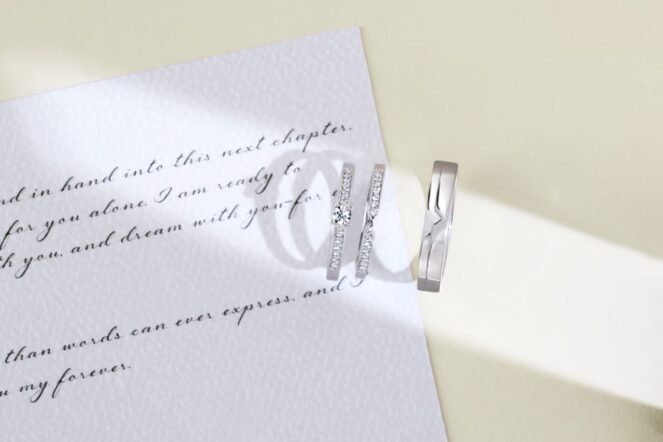 nd in hand into this next chapter.
for you alone. I am ready to
th you, and dream with you-for e
than words can ever express, and I
u my forever.